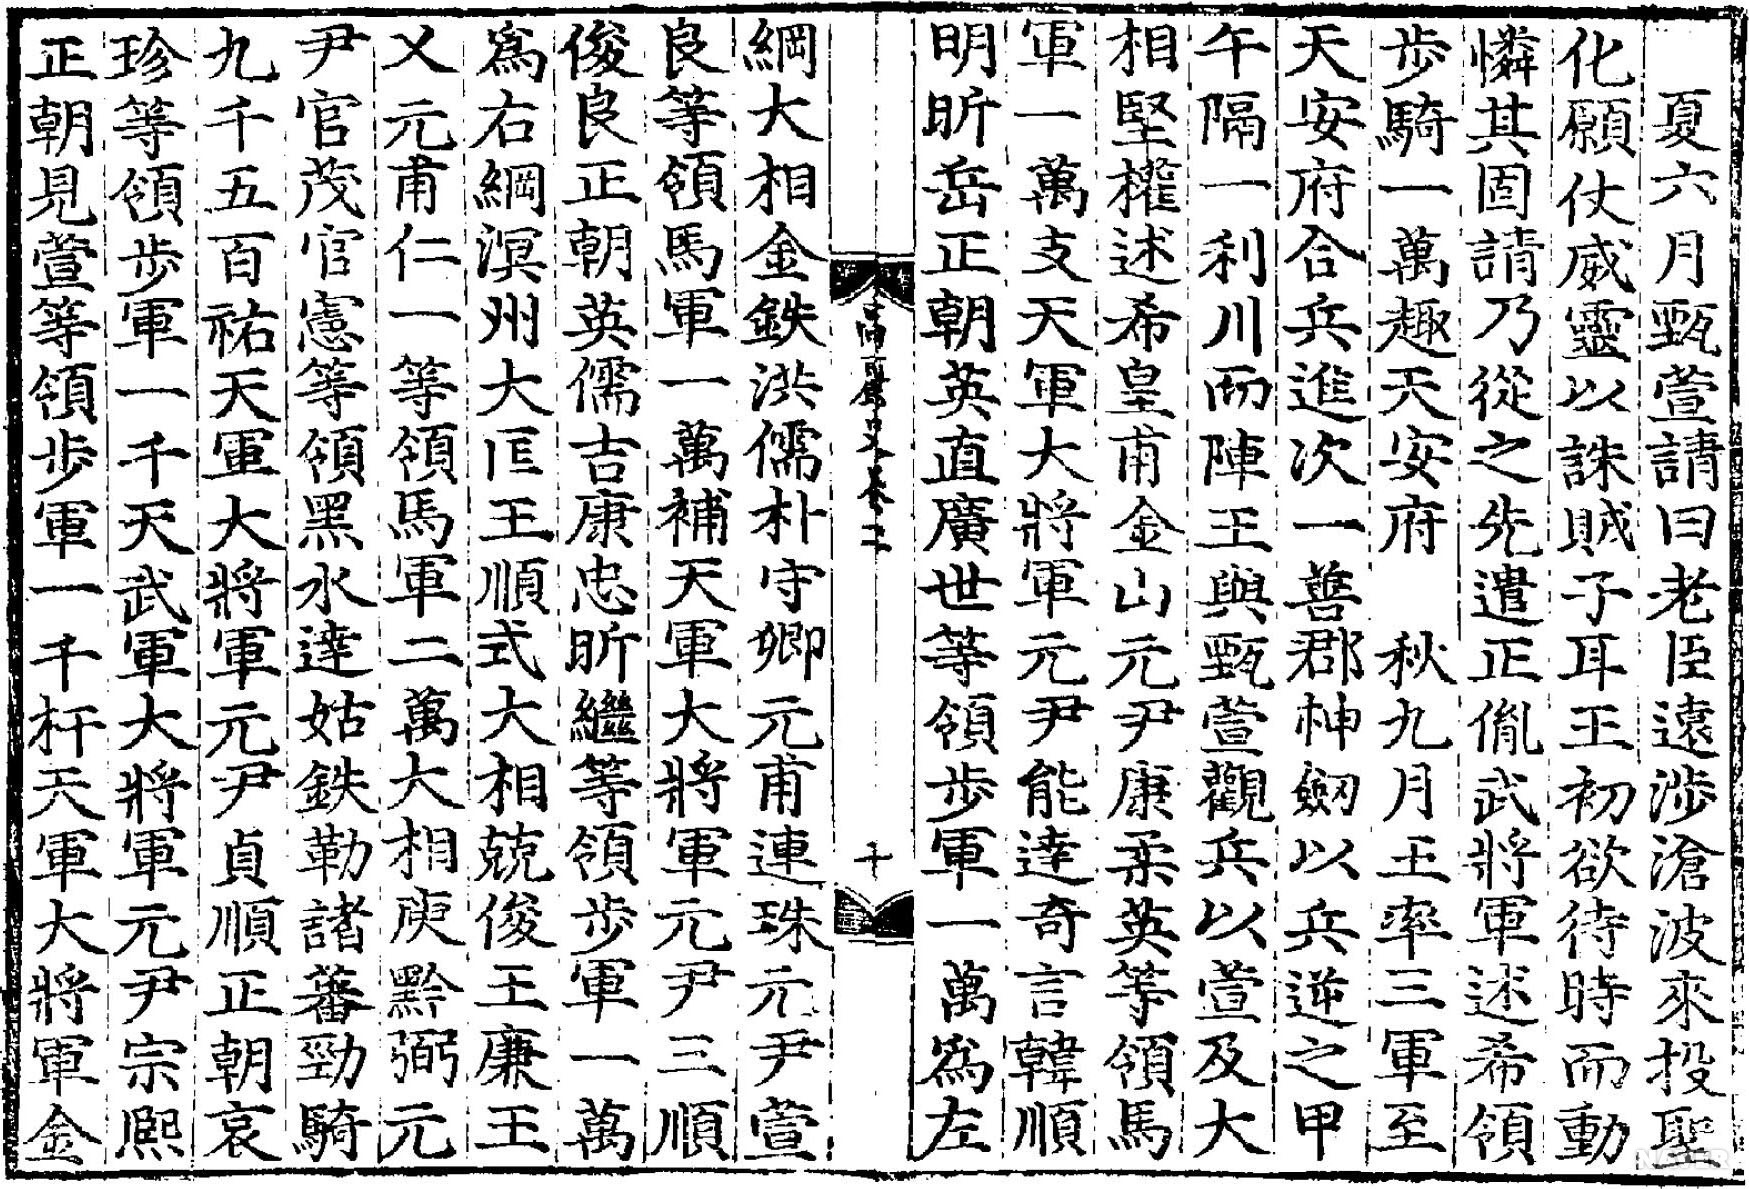 夏六月甄萱請曰老臣遠涉滄波來投聖
化願仗威靈以誅賊子耳王初欲待時而動
憐其固請乃從之先遣正胤武將軍述希領
步騎一萬趣天安府 秋九月王率三軍至
天安府合兵進次一善郡神劒以兵逆之甲
午隔一利川而陣王與甄萱觀兵以萱及大
相堅權述希皇甫金山元尹康柔英等領馬
軍一萬支天軍大將軍元尹能達奇言韓順
明昕岳正朝英直廣世等領步軍一萬爲左
高麗史卷二
十
綱大相金鉄洪儒朴守卿元甫連珠元尹萱
良等領馬軍一萬補天軍大將軍元尹三順
俊良正朝英儒吉康忠昕繼等領步軍一萬
爲右綱溟州大匡王順式大相兢俊王廉王
乂元甫仁一等領馬軍二萬大相庾黔弼元
尹官茂官憲等領黑水達姑鉄勒諸蕃勁騎
九千五百祐天軍大將軍元尹貞順正朝哀
珍等領步軍一千天武軍大將軍元尹宗熙
正朝見萱等領步軍一千杆天軍大將軍金
NAVER